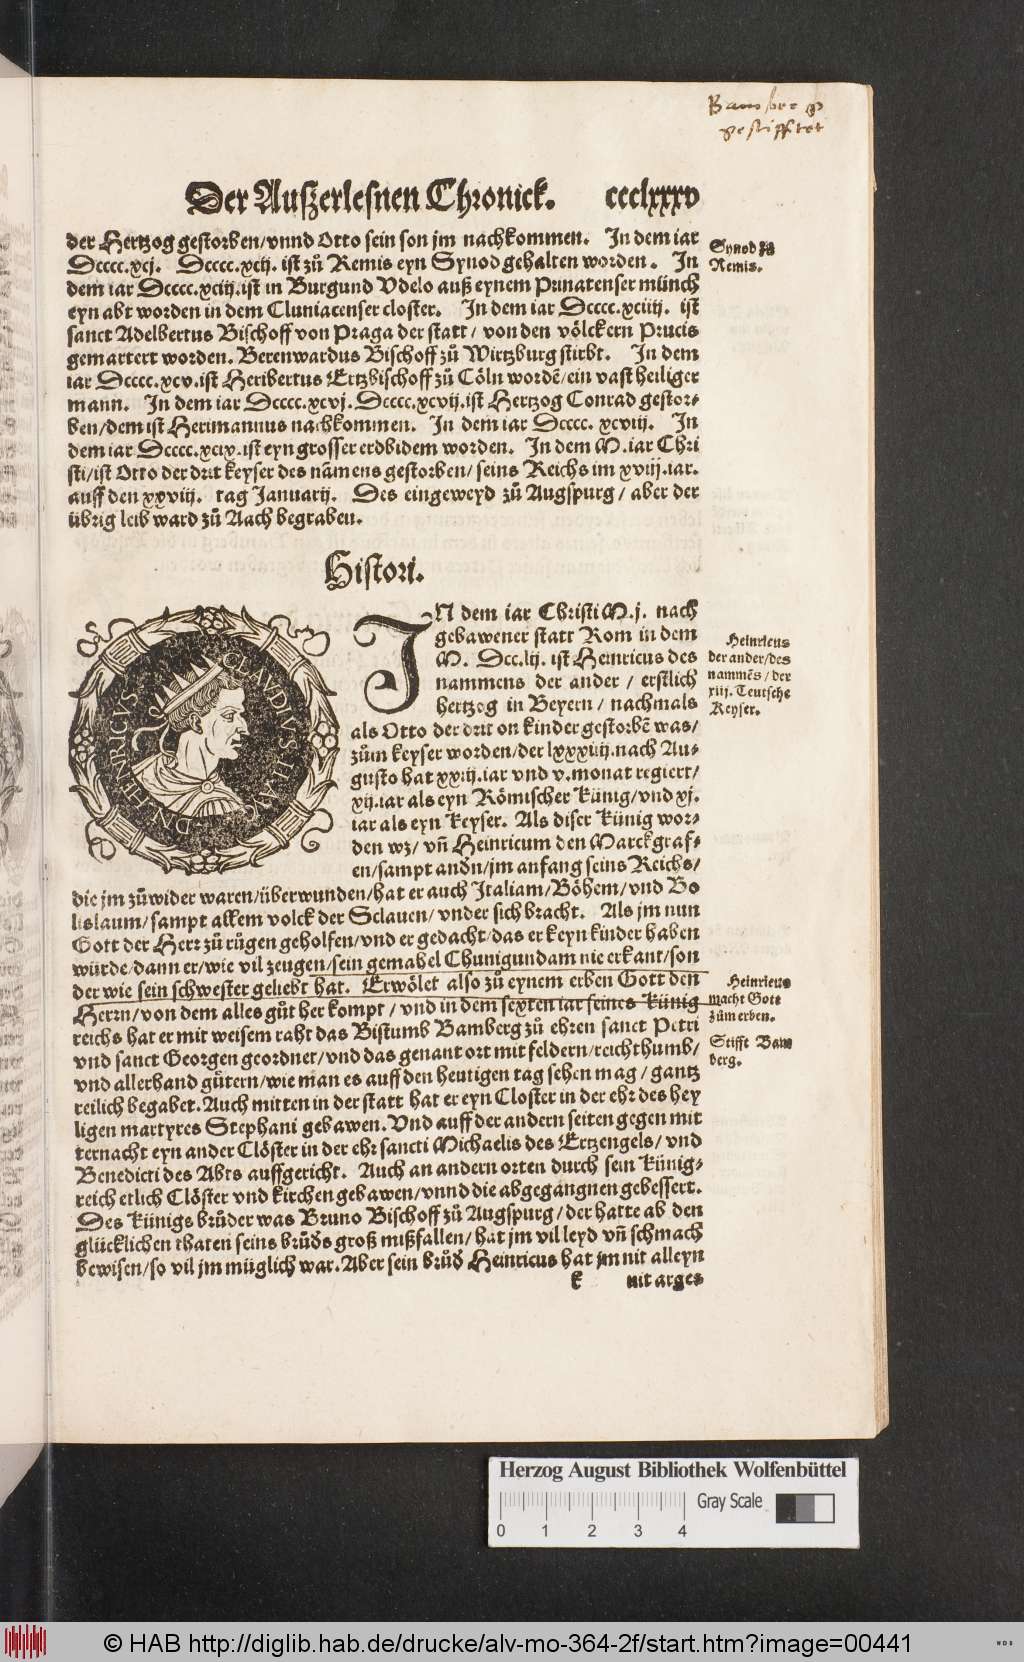 Bamberg
gestifftet
Der Außerlesnen Chronick. cccclxxxv
der Hertzog gestorben/vnnd Otto sein son jm nachkommen. In dem iar
Dcccc.xcj. Dcccc.xcij. ist zů Remis eyn Synod gehalten worden. In
dem iar Dcccc.xciij. ist in Burgund Vdelo auß eynem Prinatenser münch
eyn abt worden in dem Cluniacenser closter. In dem iar Dcccc.xciiij. ist
sanct Adelbertus Bischoff von Praga der statt/von den völckern Prucis
gemartert worden. Berenwardus Bischoff zů Wirtzburg stirbt. In dem
iar Dcccc.xcv. ist Heribertus Ertzbischoff zů Cöln wordē/ein vast heiliger
mann. In dem iar Dcccc.xcvj. Dcccc.xcvij. ist Hertzog Conrad gestor-
ben/dem ist Herimannus nachkommen. In dem iar Dcccc. xcviij. In
dem iar Dcccc.xcix. ist eyn grosser erdbidem worden. In dem M. iar Chri
sti/ist Otto der drit keyser des nãmens gestorben/seins Reichs im xviij. iar.
auff den xxviij. tag Januarij. Des eingeweyd zů Augspurg/aber der
übrig leib ward zů Aach begraben.
Synod zů
Remis.
Histori.
DIN HEINRICVS CLAVDIVS II AVG
IN dem iar Christi M.j. nach
gebawener statt Rom in dem
M. Dcc.lij. ist Heinricus des
nammens der ander/erstlich
hertzog in Beyern/nachmals
als Otto der drit on kinder gestorbē was/
zům keyser worden/der lxxxiiij. nach Au-
gusto hat xxiij. iar vnd v. monat regiert/
xij. iar als eyn Römischer Künig/vnd xj.
iar als eyn Keyser. Als diser Künig wor-
den wz/vñ Heinricum den Marckgraf-
en/sampt andn/jm anfang seins Reichs/
die jm zůwider waren/überwunden/hat er auch Italiam/Böhem/vnd Bo
lislaum/sampt allem volck der Sclauen/vnder sich bracht. Als jm nun
Gott der Herr zů rügen geholfen/vnd er gedacht/das er keyn kinder haben
würde/dann er/wie vil zeugen/sein gemahel Chunigundam nie erkant/son
der wie sein schwester geliebt hat. Erwölet also zů eynem erben Gott den
Herrn/von dem alles gůt her kompt/vnd in dem sexten iar seines Künig
reichs hat er mit weisem raht das Bistumb Bamberg zů ehren sanct Petri
vnd sanct Georgen geordnet/vnd das genant ort mit feldern/reichthumb/
vnd allerhand gütern/wie man es auff den heutigen tag sehen mag/gantz
reilich begabet. Auch mitten in der statt hat er eyn Closter in der ehr des hey
ligen martyres Stephani gebawen. Vnd auff der andern seiten gegen mit
ternacht eyn ander Clöster in der ehr sancti Michaelis des Ertzengels/vnd
Benedicti des Abts auffgericht. Auch an andern orten durch sein Künig-
reich etlich Clöster vnd kirchen gebawen/vnnd die abgegangnen gebessert.
Des Künigs brůder was Bruno Bischoff zů Augspurg/der hatte ab den
glücklichen thaten seins brůds groß mißfallen/hat jm vil leyd vñ schmach
bewisen/so vil jm müglich war. Aber sein brůd Heinricus hat jm nit alleyn
k nit arges
Heinricus
der ander/des
nammēs/der
xiij. Teutsche
Keyser.
Heinricus
macht Gott
zům erben.
Stifft Bam
berg.
Herzog August Bibliothek Wolfenbüttel
Gray Scale
0 1 2 3 4
© HAB http://diglib.hab.de/drucke/alv-mo-364-2f/start.htm?image=00441